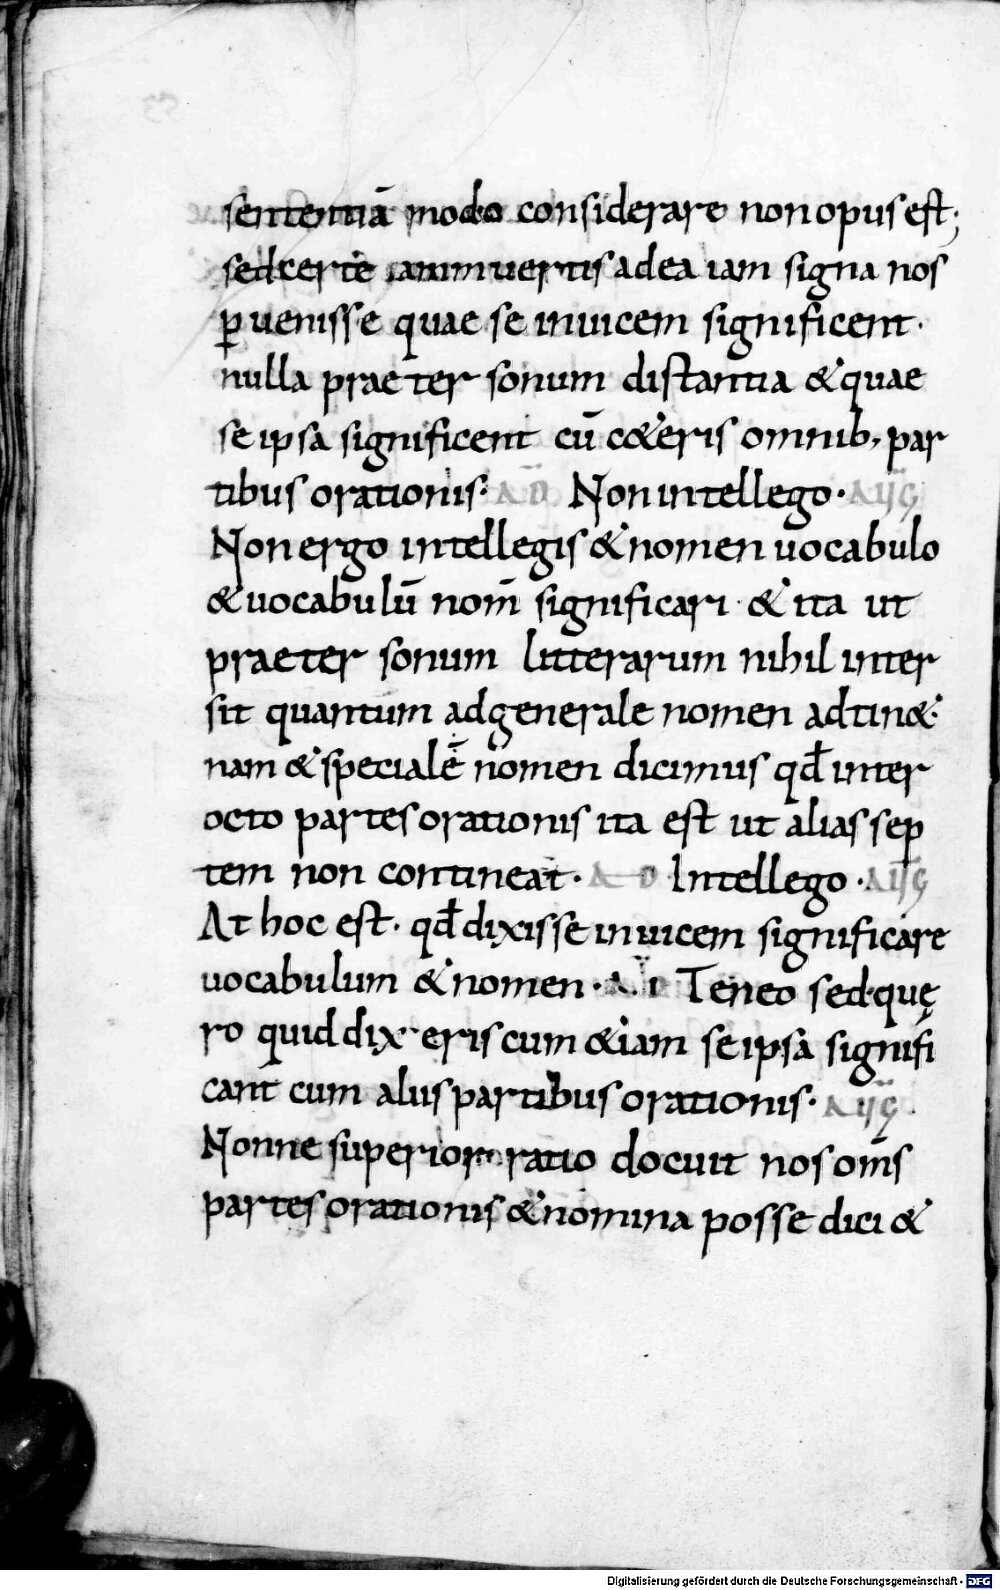 sententiā modo considerare non opus est;
sed certe animvertis ad ea iam signa nos
ꝑvenisse quae se invicem significent·
nulla praeter sonum distantia & quae
se ipsa significent cū c&eris omnib, par
tibus orationis· AD Non intellego· AUG
Non ergo intellegis & nomen vocabulo
& vocabulū nom̄ significari · & ita ut
praeter sonum litterarum nihil inter
sit quantum ad generale nomen adtin&·
nam & specialē nomen dicimus qđ inter
octo partes orationis ita est ut alias sep
tem non contineat· AD Intellego · AUG
At hoc est· qđ dixisse invicem significare
vocabulum & nomen · AD Teneo sed quę
ro quid dixeris cum &iam se ipsa signifi
cant cum aliis partibus orationis· AUG
Nonne superior ratio docuit nos oms̄
partes orationis & nomina posse dici &
Digitalisierung gefördert durch die Deutsche Forschungsgemeinschaft - DFG